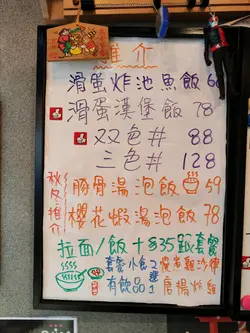 推介
滑蛋炸池魚飯 68
滑蛋漢堡飯 78
双色丼 88
三色丼 128
秋冬推介
豚骨湯泡飯 59
櫻花蝦湯泡飯 78
拉面/飯+$35跟套餐
套餐小食2選1
有飲品
唐揚炸雞